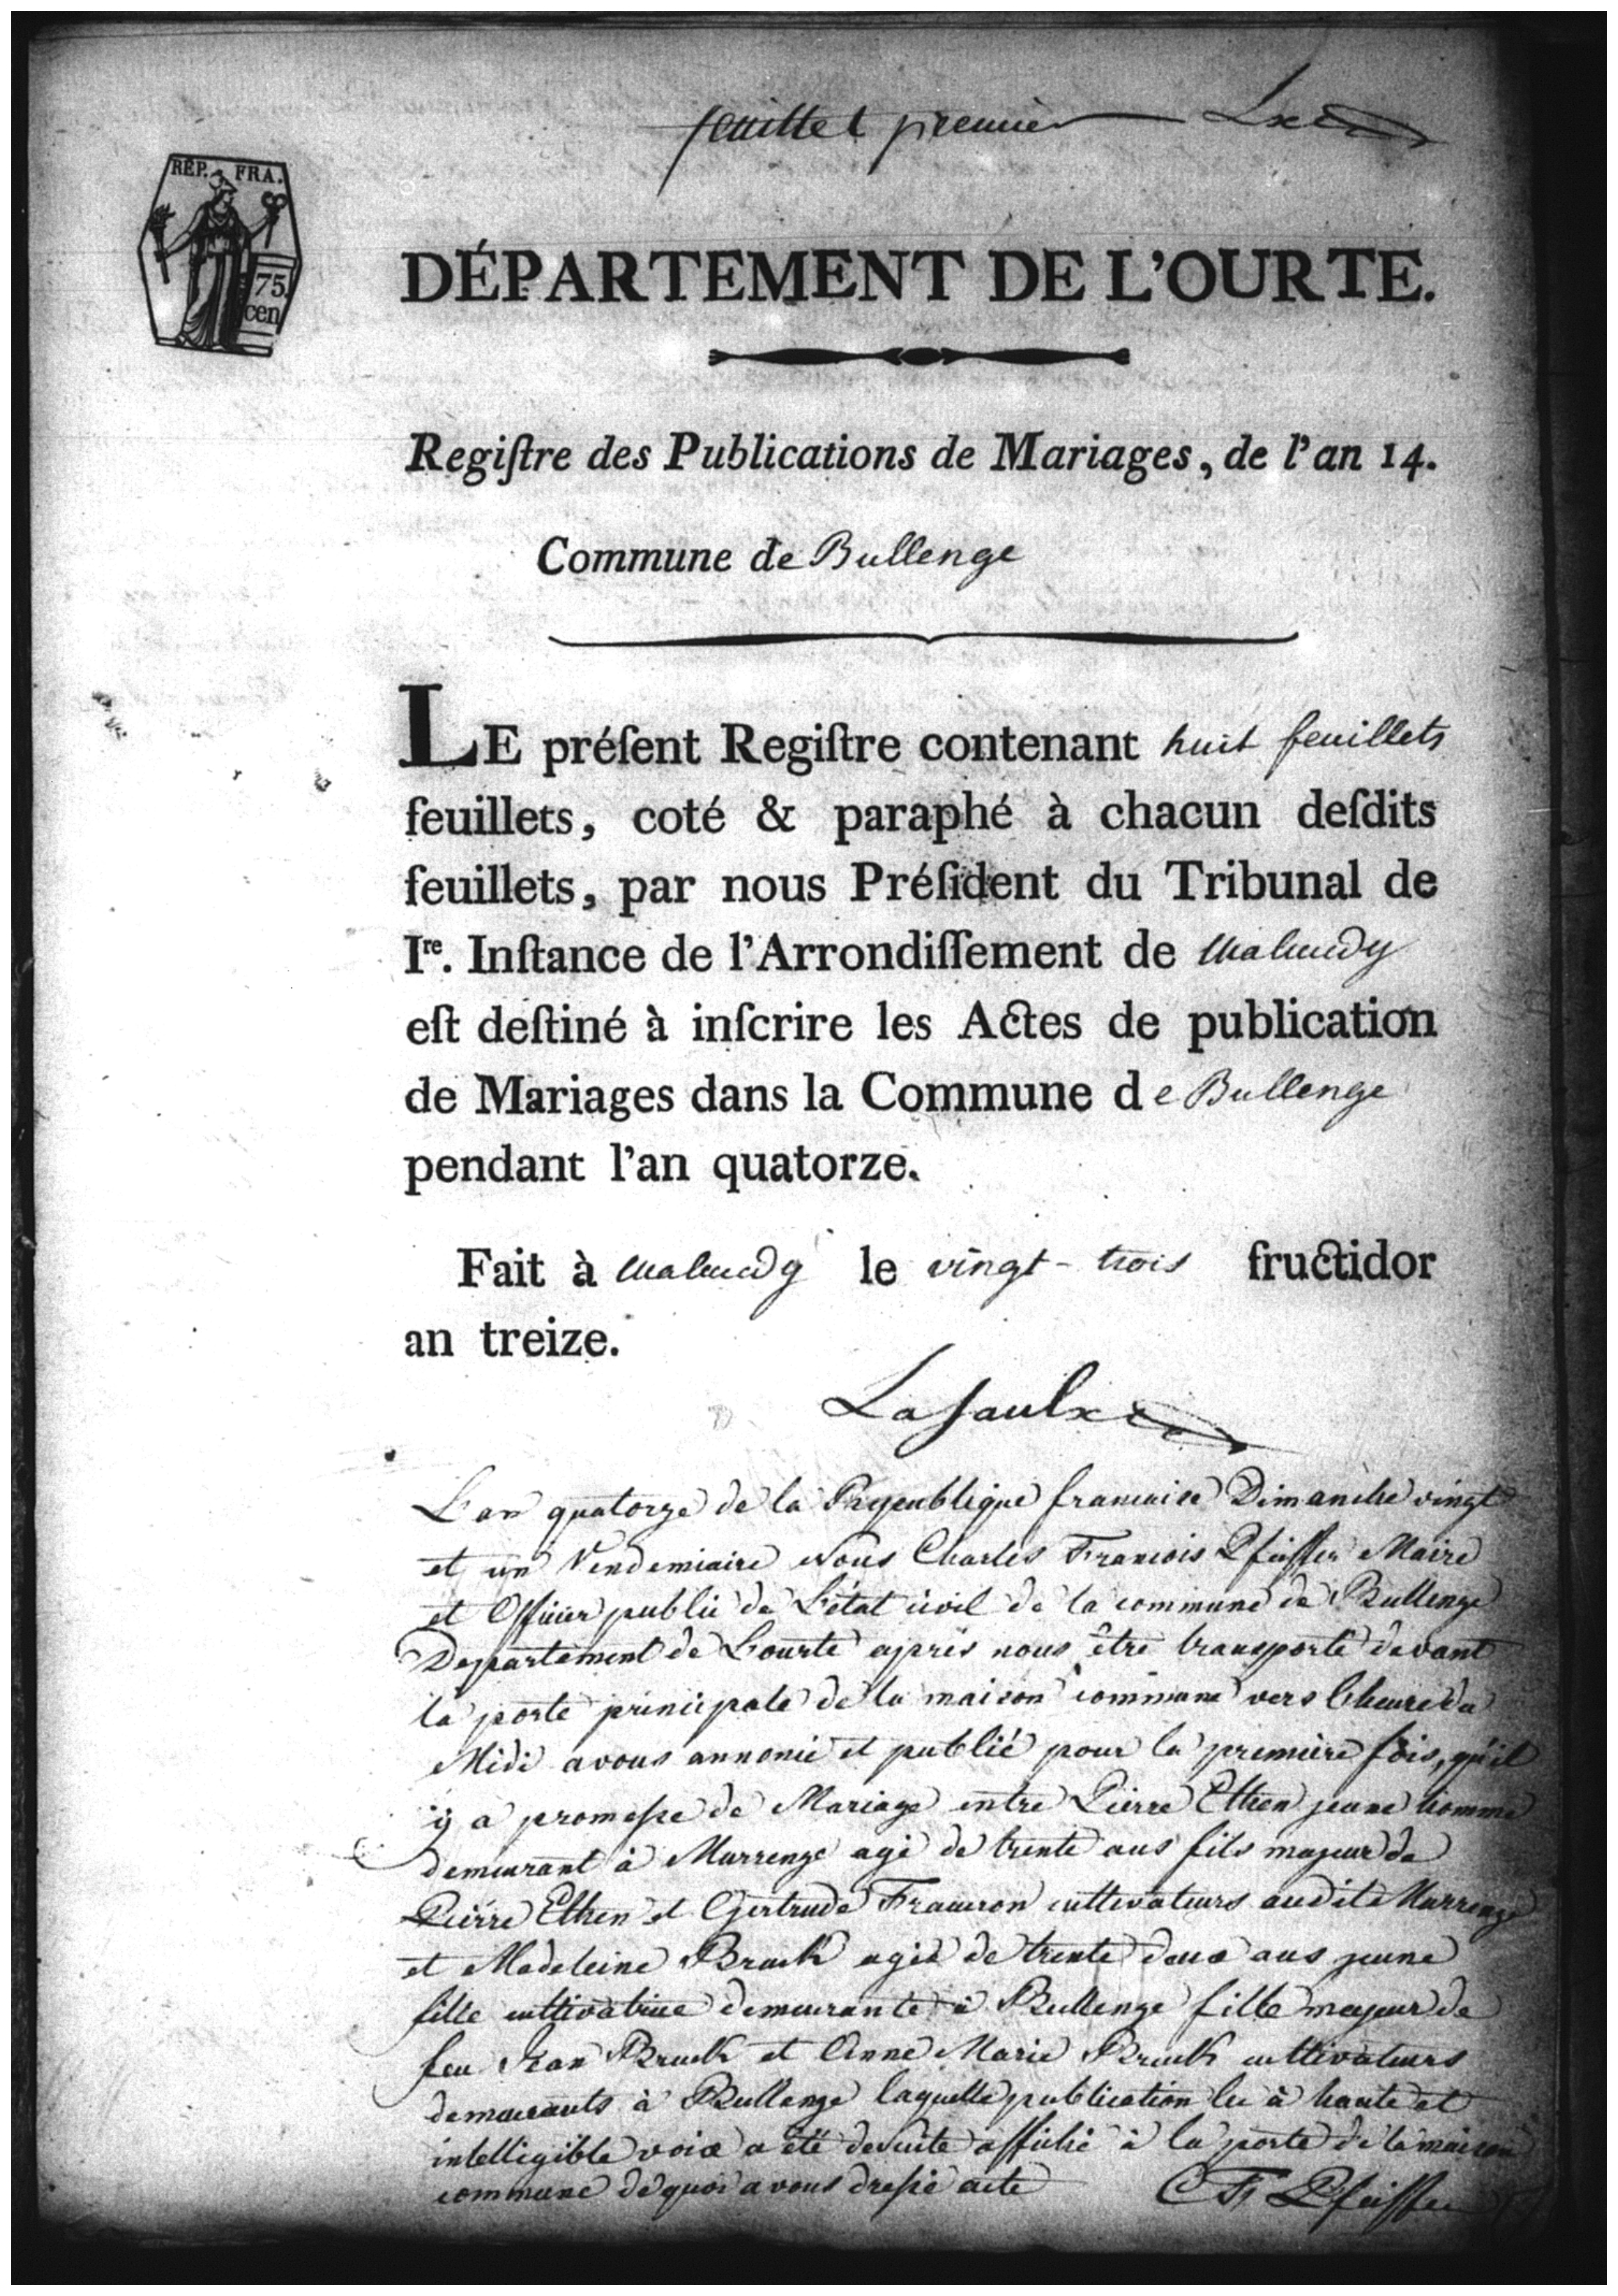 feuillet premier Lx
RÉP. FRA.
75.
cen
DÉPARTEMENT DE L'OURTE.
Regiſtre des Publications de Mariages, de l'an 14.
Commune de Bullenge
LE préſent Regiſtre contenant huit feuillets
feuillets, coté & paraphé à chacun deſdits
feuillets, par nous Préſident du Tribunal de
Ire. Inſtance de l'Arrondiſſement de Malmedy
eſt deſtiné à inſcrire les Actes de publication
de Mariages dans la Commune de Bullenge
pendant l'an quatorze.
Fait à Malmedy le vingt-trois fructidor
an treize.
Lasaulx
L'an quatorze de la Republique francaise Dimanche vingt
et un Vendemiaire Nous Charles Francois Pfeiffer Maire
et Officier public de L'état civil de la commune de Bullenge
Departement de Lourte après nous être transporté devant
la porte principale de la maison commune vers l'heure du
Midi avons annoncé et publié pour la première fois, qu'il
y a promesse de Mariage entre Pierre Ethen jeune homme
demeurant à Murrenge agé de trente ans fils majeur de
Pierre Ethen et Gertrude cultivateurs audite Murrenge
et Madeleine Bruck agée de trente deux ans jeune
fille cultivatrice demeurante à Bullenge fille majeur de
feu Jean Bruck et Anne Marie Bruck cultivateurs
demeurants à Bullenge laquelle publication lu à haute et
intelligible voix a été desuite affiché à la porte de la maison
commune de quoi avons dressé acte CF Pfeiffer